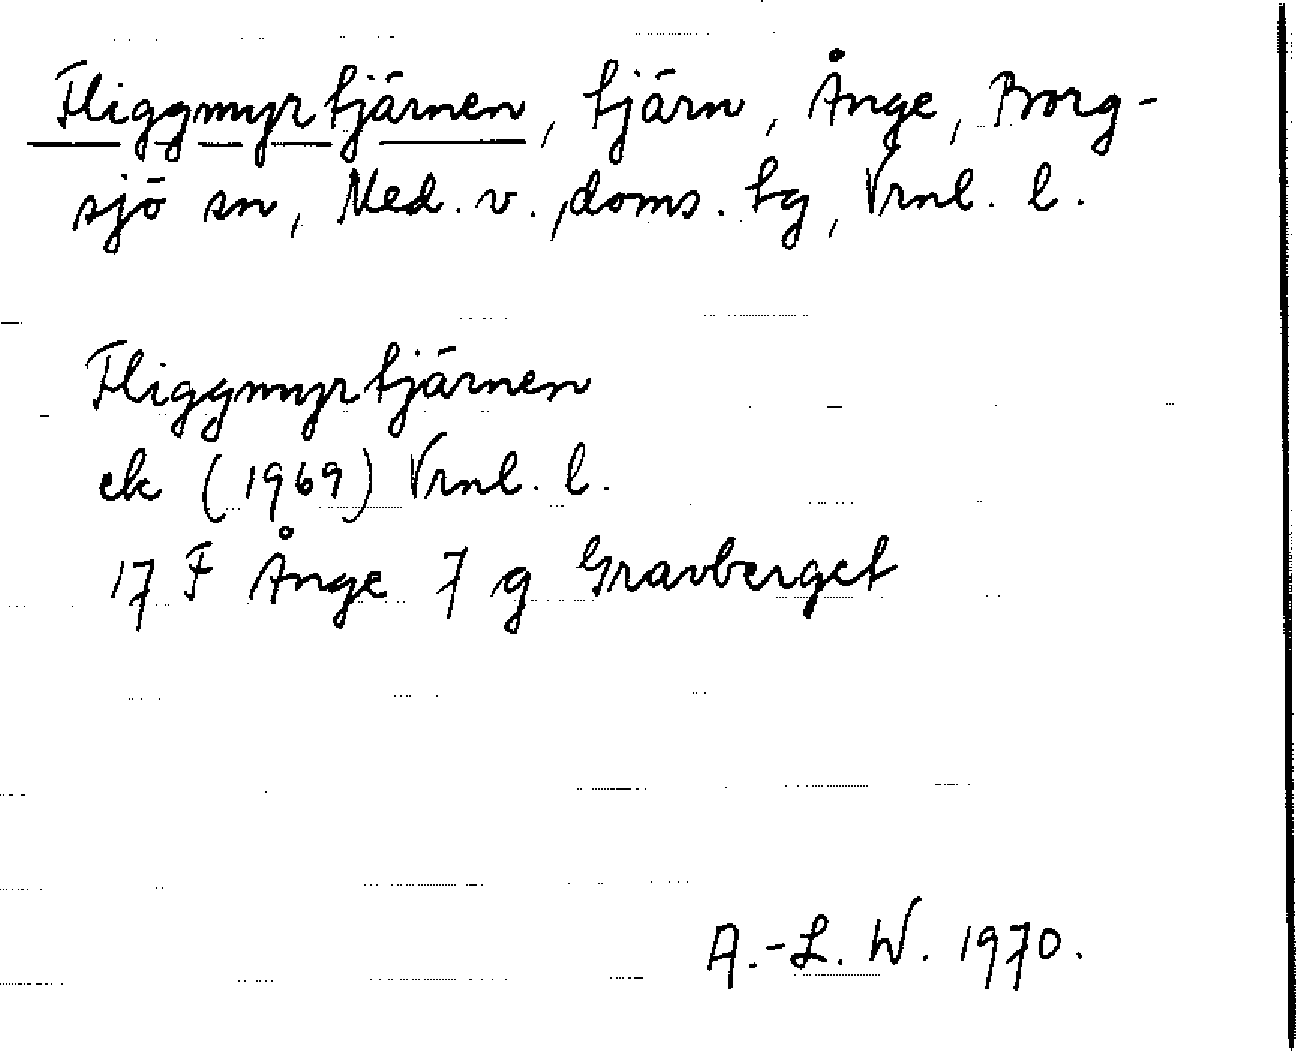 Fliggmyrtjärnen, tjärn, Ånge, Borg-
sjö sn, Med. v., doms. tg, Vrnl. l.
Fliggmyrtjärnen
ek (1969) Vrnl. l.
17 F Ånge 7 g Gravberget
A.-L. W. 1970.